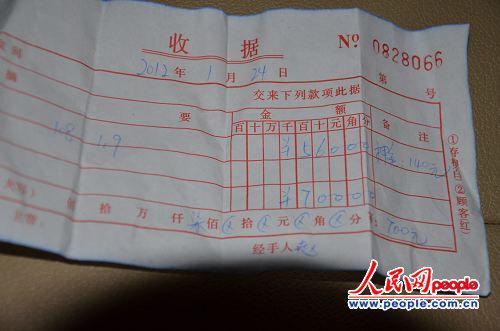 收 据 Nº 0828066
2012年 1月 24日 第 号
交来下列款项此据
摘 要 金 额 备 注
百十万千百十元角分
1.8 1.9 ¥56000 押金:140元
¥70000
拾 万 仟 柒佰 拾 元 角 分 ¥: 700元
经手人
①存根(白) ②顾客(红)
人民网 people
www.people.com.cn